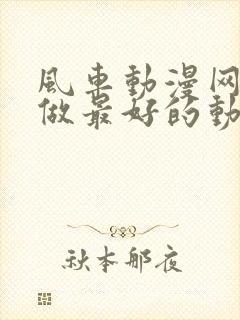 風車動漫网
做最好的動
秋本那夜